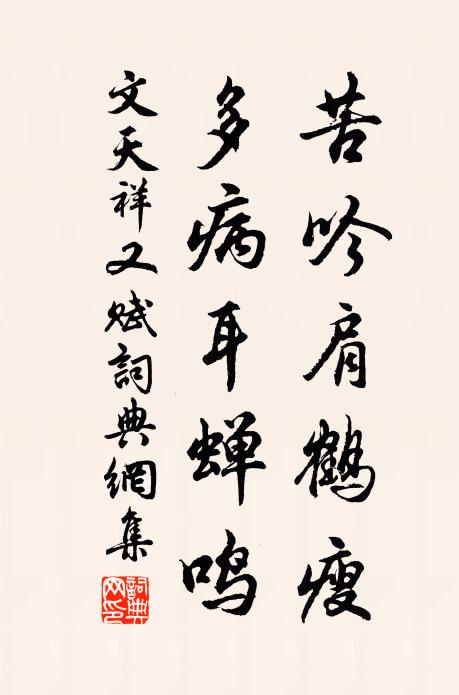 苦吟肩鹤瘦
多病耳蝉鸣
文天祥又赋詞典網集
詞典網印